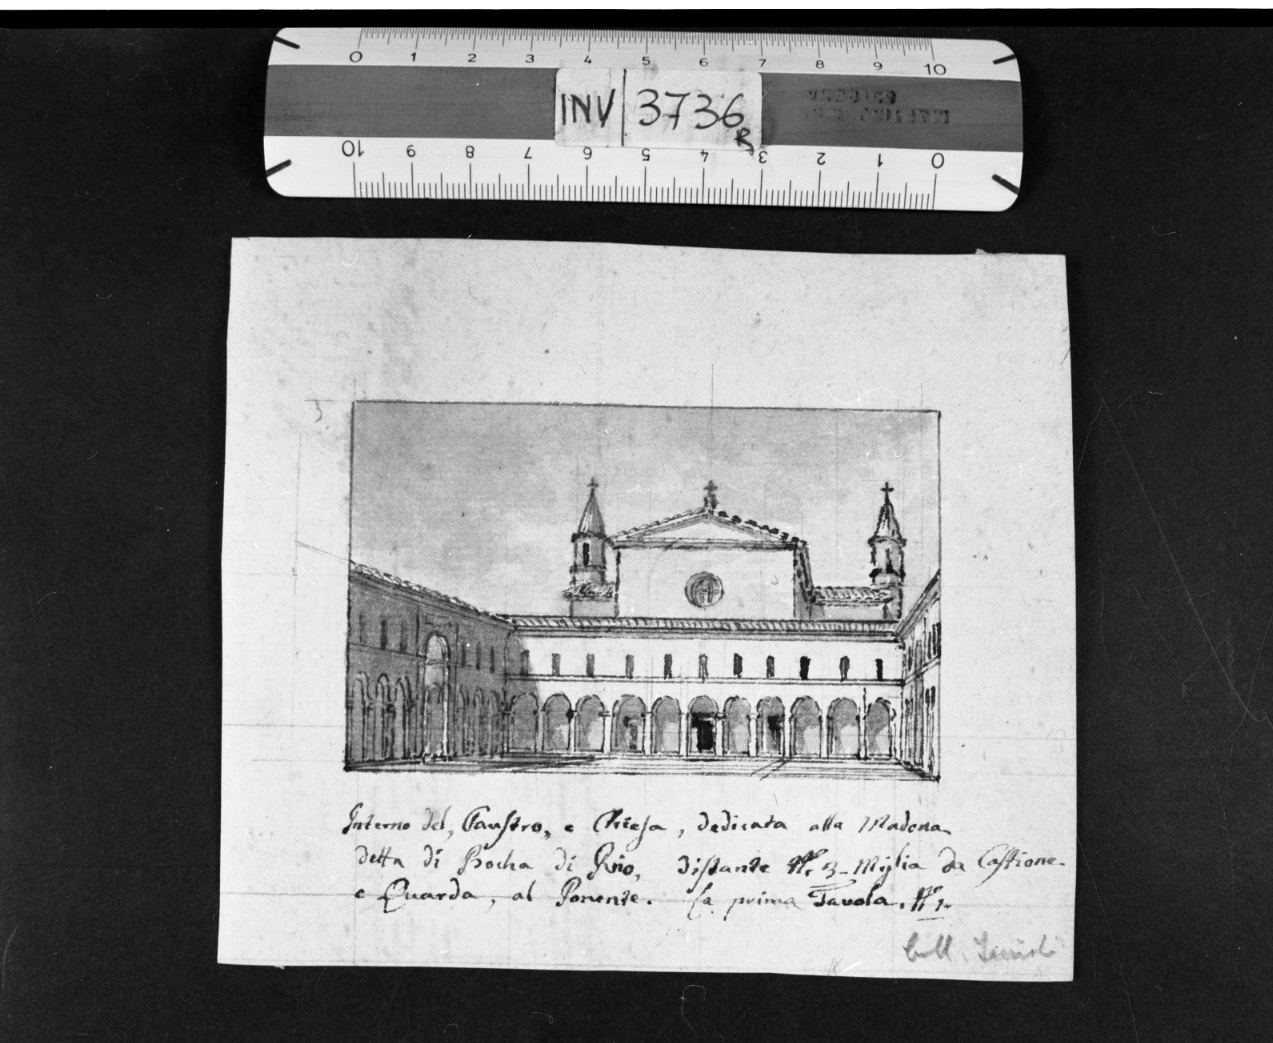 0 1 2 3 4 5 6 7 8 9 10
INV 3736
B
10 9 8 7 6 5 4 3 2 1 0
Interno del, Caustro, e Chiesa, dedicata alla Madona
detta di Rocha di Rio, distante Nr. 3 Miglia da Castione
e Quarda, al Ponente. La prima Tavola. Nr 1.
Coll.